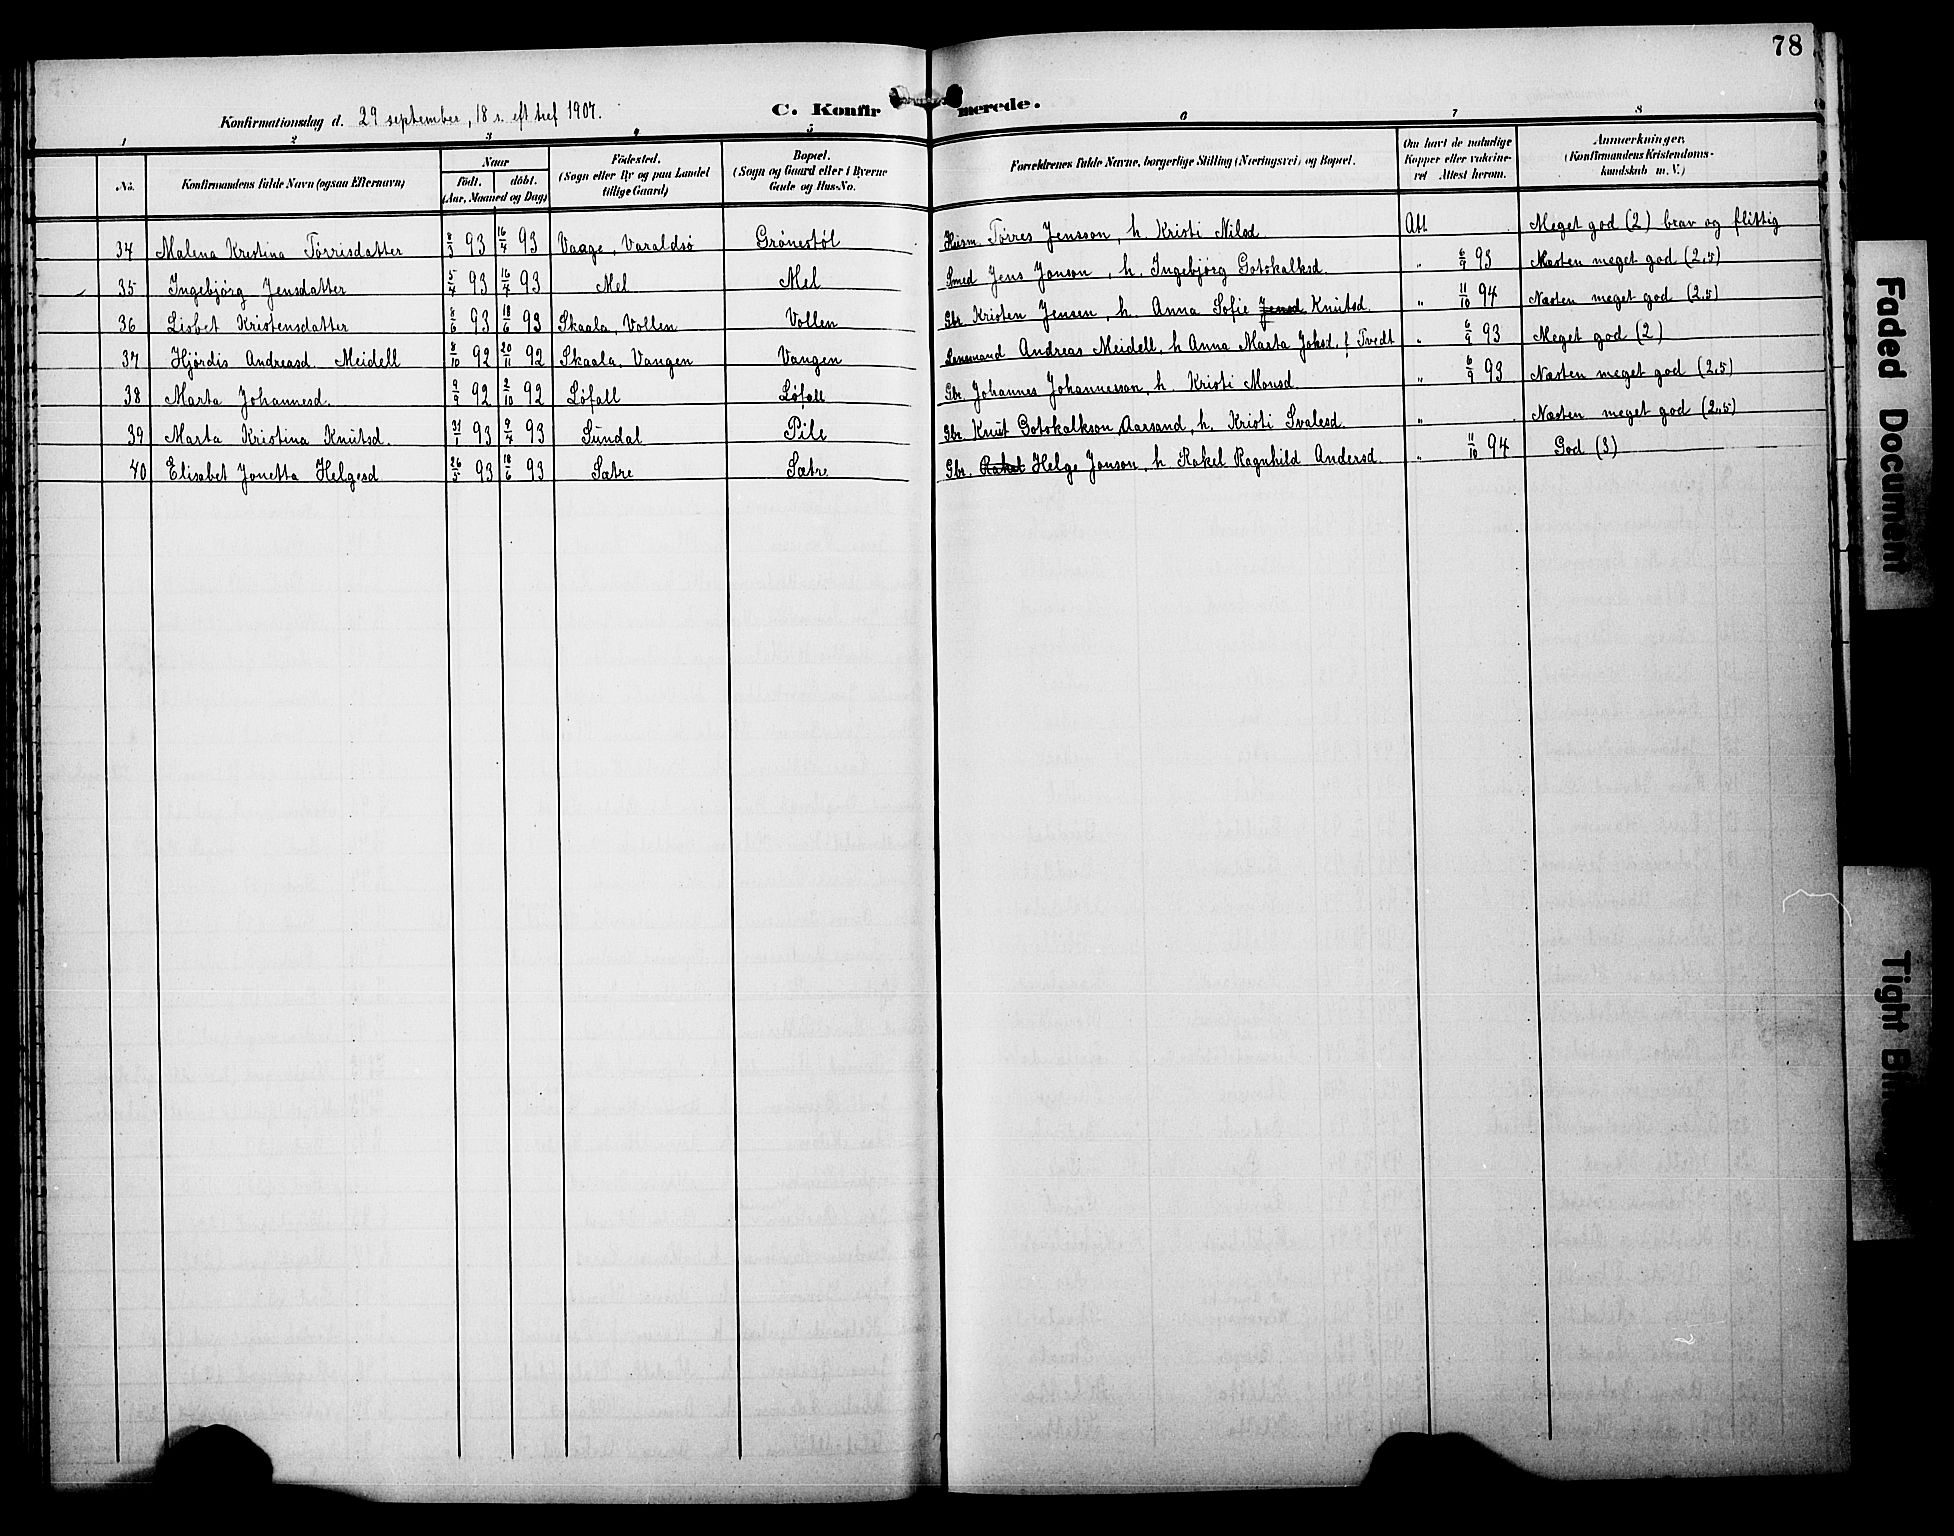 78
Konfirmationsdag d. 29 september, 18 s. eft tref 1907.
C. Konfirmerede.
1 2 3 4 5 6 7 8
No. | Konfirmandens fulde Navn (ogsaa Efternavn) | Naar født. døbt. (Aar, Maaned og Dag) | Fødested. (Sogn eller By og paa Landet tillige Gaard) | Bopæl. (Sogn og Gaard eller i Byerne Gade og Hus-No. | Forældrenes fulde Navne, borgerlige Stilling (Næringsvei) og Bopæl. | Om havt de naturlige Kopper eller vakcineret Attest herom. | Anmærkninger. (Konfirmandens Kristendomskundskab m. V.)
34 Malena Kristina Tørrisdatter 8/3 93 16/4 93 Vaage, Varaldsø Grønestøl Husm. Tørres Jensson, h. Kristi Nilsd. Att Meget god (2) brav og flittig
35 Ingebjørg Jensdatter 5/4 93 16/4 93 Mel Mel Smed Jens Jonson, h. Ingebjørg Gotskalksd. " 6/9 93 Næsten meget god (2,5)
36 Lisbet Kristensdatter 8/6 93 18/6 93 Skaala, Vollen Vollen Gbr. Kristen Jensen, h. Anna Sofie Jensd Knutsd. " 11/10 94 Næsten meget god (2,5)
37 Hjørdis Andreasd. Meidell 8/10 92 20/11 92 Skaala, Vangen Vangen Lensmand Andreas Meidell, h Anna Marta Joksd. f Tvedt " 6/9 93 Meget god (2)
38 Marta Johannesd. 9/9 92 2/10 92 Løfall Løfall Gbr. Johannes Johannesson, h. Kristi Monsd. " 6/9 93 Næsten meget god (2,5)
39 Marta Kristina Knutsd. 31/1 93 9/4 93 Sundal Pile Gbr. Knut Gotskalkson Aarsand, h. Kristi Svalesd. " Næsten meget god (2,5)
40 Elisabet Jonetta Helgesd 26/5 93 18/6 93 Sætre Sætre Gbr. Rakel Helge Jonson, h Rakel Ragnhild Andersd. " 11/10 94 God (3)
Faded Document
Tight